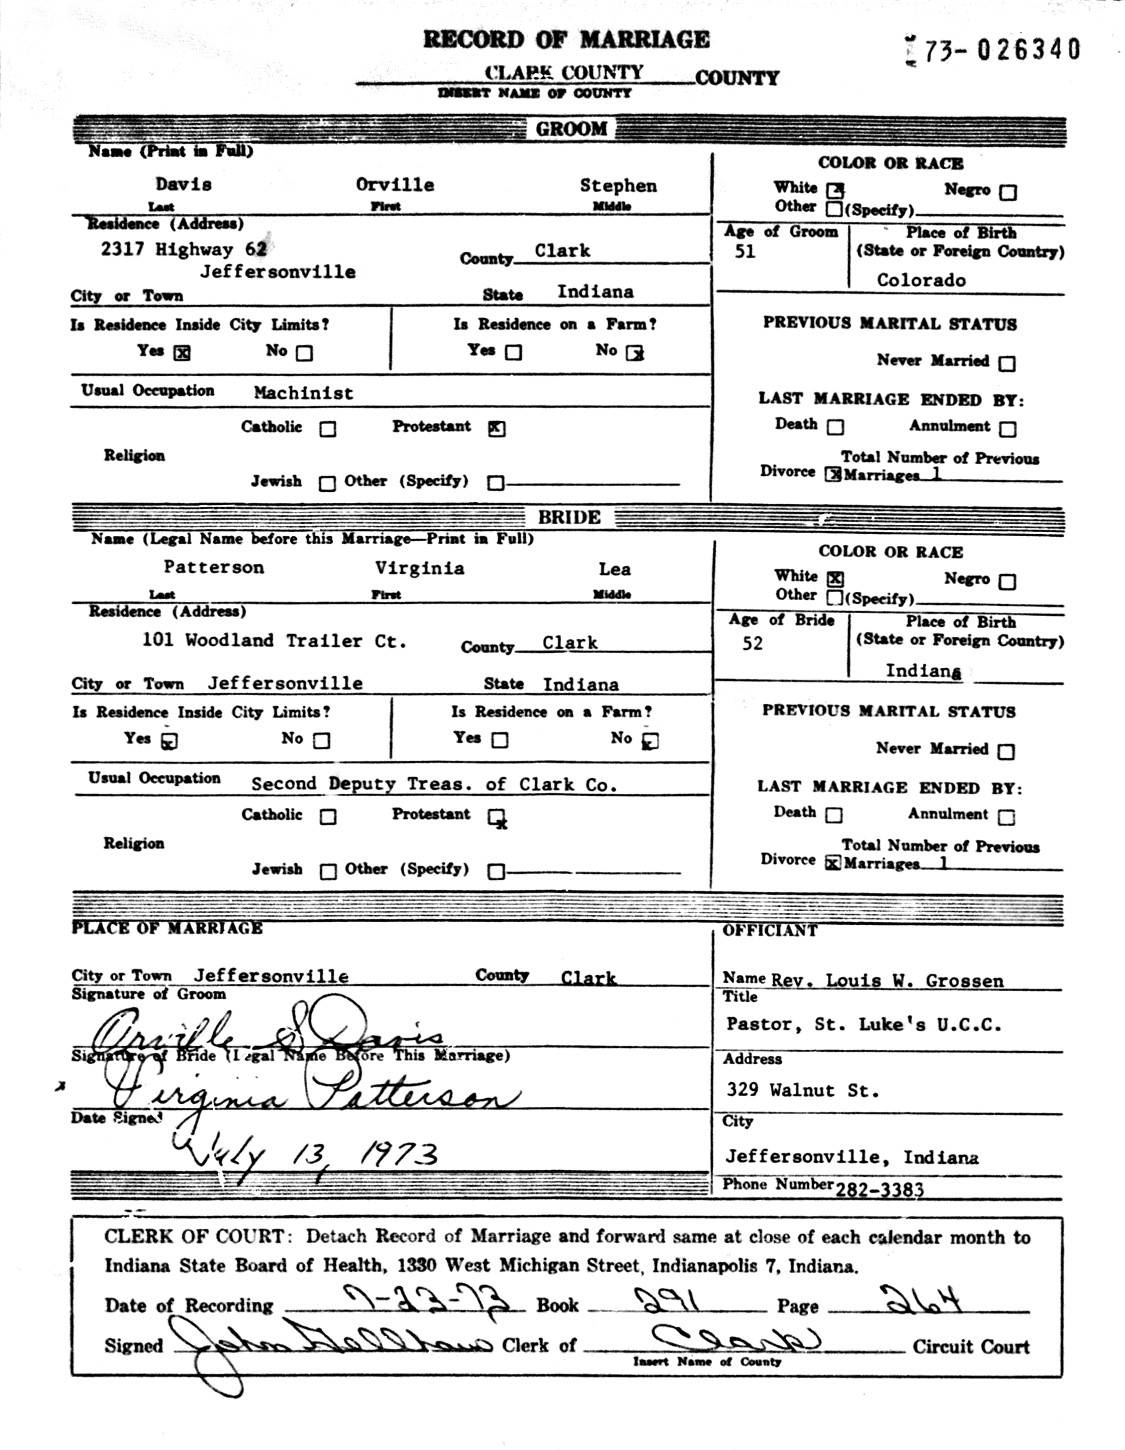 RECORD OF MARRIAGE
73-026340
CLARK COUNTY COUNTY
INSERT NAME OF COUNTY
GROOM
Name (Print in Full)
Davis Orville Stephen
Last First Middle
Residence (Address)
2317 Highway 62
Jeffersonville
County Clark
City or Town
State Indiana
Is Residence Inside City Limits?
Yes ☒ No ☐
Is Residence on a Farm?
Yes ☐ No ☒
Usual Occupation Machinist
Catholic ☐ Protestant ☒
Religion
Jewish ☐ Other (Specify) ☐
COLOR OR RACE
White ☒ Negro ☐
Other ☐ (Specify)
Age of Groom
51
Place of Birth
(State or Foreign Country)
Colorado
PREVIOUS MARITAL STATUS
Never Married ☐
LAST MARRIAGE ENDED BY:
Death ☐ Annulment ☐
Total Number of Previous
Divorce ☒ Marriages 1
BRIDE
Name (Legal Name before this Marriage—Print in Full)
Patterson Virginia Lea
Last First Middle
Residence (Address)
101 Woodland Trailer Ct. County Clark
City or Town Jeffersonville State Indiana
Is Residence Inside City Limits?
Yes ☒ No ☐
Is Residence on a Farm?
Yes ☐ No ☒
Usual Occupation Second Deputy Treas. of Clark Co.
Catholic ☐ Protestant ☒
Religion
Jewish ☐ Other (Specify) ☐
COLOR OR RACE
White ☒ Negro ☐
Other ☐ (Specify)
Age of Bride
52
Place of Birth
(State or Foreign Country)
Indiana
PREVIOUS MARITAL STATUS
Never Married ☐
LAST MARRIAGE ENDED BY:
Death ☐ Annulment ☐
Total Number of Previous
Divorce ☒ Marriages 1
PLACE OF MARRIAGE
City or Town Jeffersonville County Clark
Signature of Groom
Orville S Davis
Signature of Bride (Legal Name Before This Marriage)
x Virginia Patterson
Date Signed
July 13, 1973
OFFICIANT
Name Rev. Louis W. Grossen
Title
Pastor, St. Luke's U.C.C.
Address
329 Walnut St.
City
Jeffersonville, Indiana
Phone Number 282-3383
CLERK OF COURT: Detach Record of Marriage and forward same at close of each calendar month to
Indiana State Board of Health, 1330 West Michigan Street, Indianapolis 7, Indiana.
Date of Recording 7-23-73 Book 291 Page 264
Signed John Clerk of Clark Circuit Court
Insert Name of County